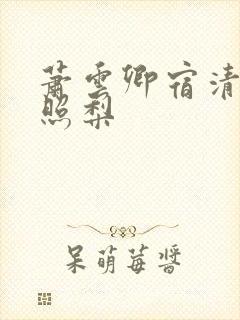 蕭雲卿宿清
照梨
呆萌莓醬